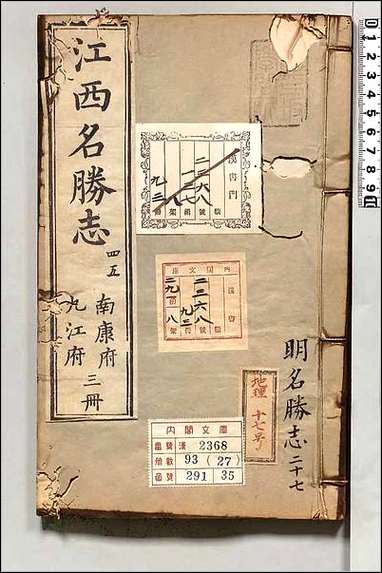 江西名勝志
四五
南康府
九江府
三冊
漢書門
二三六八
一二七
八
九三
號
函
架
冊
內閣文庫
漢書
二三六八
九三
二九一
八
號
冊
函
架
地理
明名勝志二十七
內閣文庫
番號 漢 2368
冊數 93 ( 27 )
函號 291 35
0 1 2 3 4 5 6 7 8 9 10